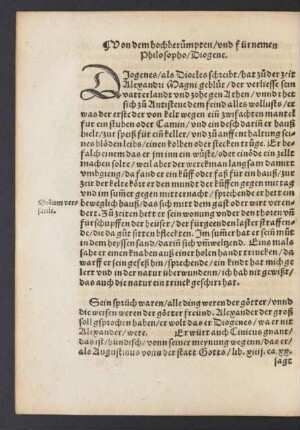 Von dem hochberümpten/ vnd fürnemen
Philosopho/ Diogene.
DJogenes/ als Diocles schreibt/ hat zů der zeit
Alexandri Magni geblüt/ der verliesse sein
vatterlandt vnd zohe gen Athen/ vnnd thet
sich zů Antistene dem feind alles wollusts/ er
was der erste der von kelt wegen ein zwifachten mantel
für ein stuben oder Camin/ vnd ein desch darin er hauß
hielt/ zur speß für ein keller/ vnd zů auffenthaltung sei-
nes blöden leibs/ einen kolben oder stecken trüge. Er be-
falch einem das er im
machen solte/ weil aber der werckman langsam damitt
vmbgieng/ da fand er ein küff oder faß für ein hauß/ zur
zeit der kelte kört er den mundt der küffen gegen mittag
vnd im sumer gegen mitternacht/ sprechende er hett ein
beweglich hauß/ das sich mitt dem gast oder wirt veren-
dert. Zů zeiten hett er sein wonung vnder den
für schupffen der heuser/ der fürgeenden laster straffen-
de/ das gůt sitten steckten. Im sumer hat er sein
in dem heyssen sand/ darin sich vmwelzend. Eins mals
sahe er einen knaben auß einer holen handt trincken/ da
warff er sein geseß hin/ sprechende/ ein kindt hat mich ge
lert vnd in der natur überwundenn/ ich hab nit gewißt/
das auch die natur ein trinckgeschirr hat.
Sein sprüch waren/ alle ding weren der götter/ vnnd
die weisen weren der götter freünd. Alexander der groß
soll gsprochen haben/ er wolt das er Diogenes/ wa er nit
Alexander/ were. Er würt auch Cinicus gnant/
das ist/ hündisch/ vonn seiner meynung wegenn/ das er/
als Augustinus vonn der statt Gotts/ lib. xiiij. ca. xx.
sagt